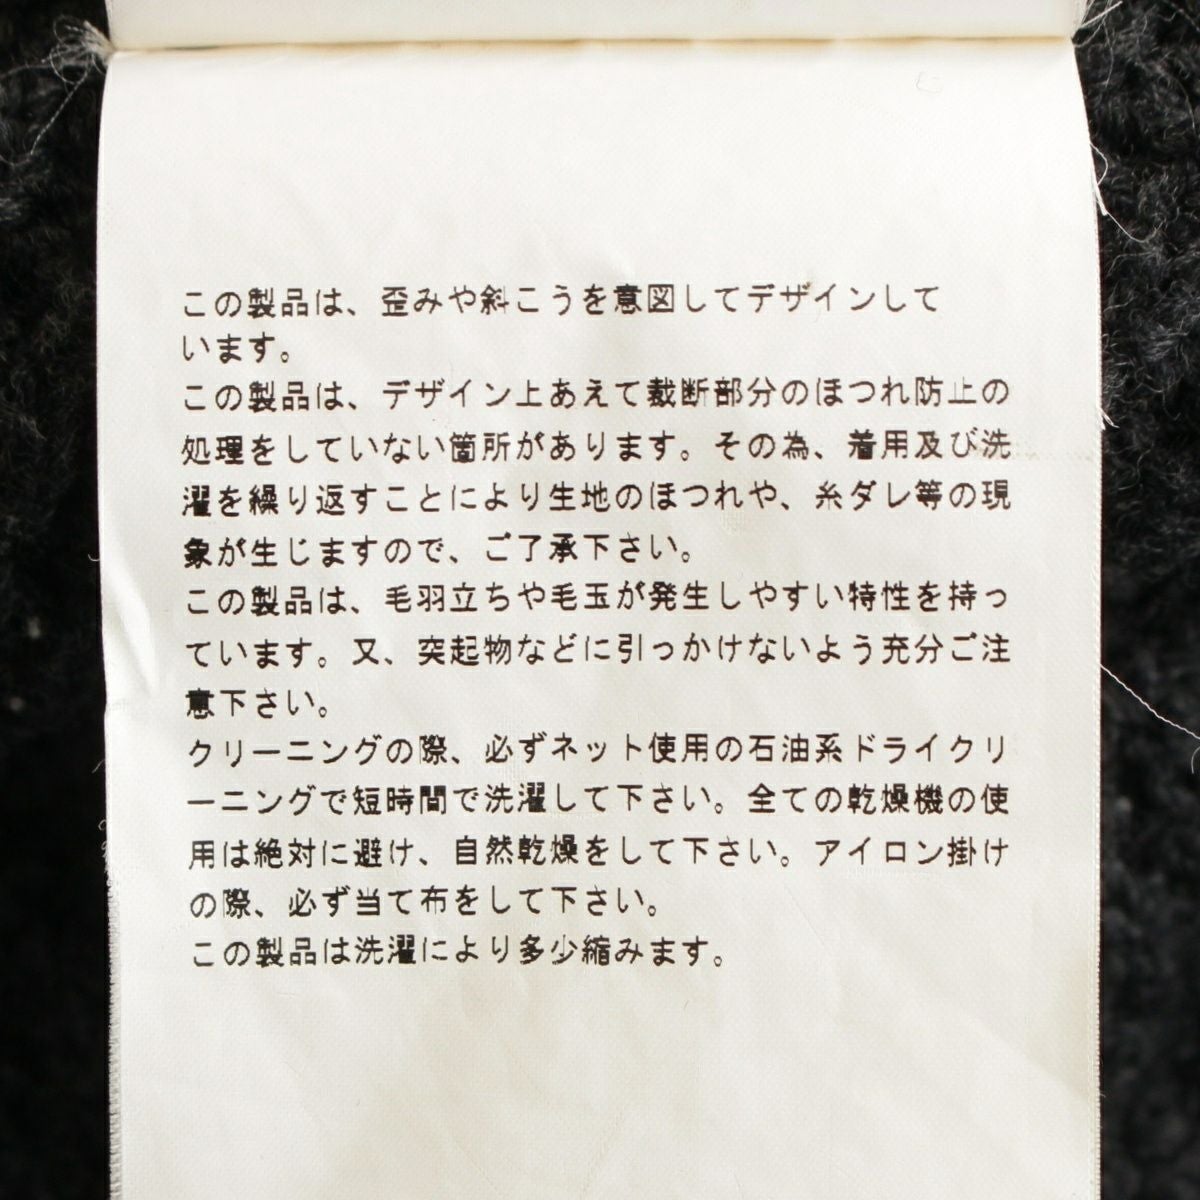 この製品は、歪みや斜こうを意図してデザインして
います。
この製品は、デザイン上あえて裁断部分のほつれ防止の
処理をしていない箇所があります。その為、着用及び洗
濯を繰り返すことにより生地のほつれや、糸ダレ等の現
象が生じますので、ご了承下さい。
この製品は、毛羽立ちや毛玉が発生しやすい特性を持っ
ています。又、突起物などに引っかけないよう充分ご注
意下さい。
クリーニングの際、必ずネット使用の石油系ドライクリ
ーニングで短時間で洗濯して下さい。全ての乾燥機の使
用は絶対に避け、自然乾燥をして下さい。アイロン掛け
の際、必ず当て布をして下さい。
この製品は洗濯により多少縮みます。